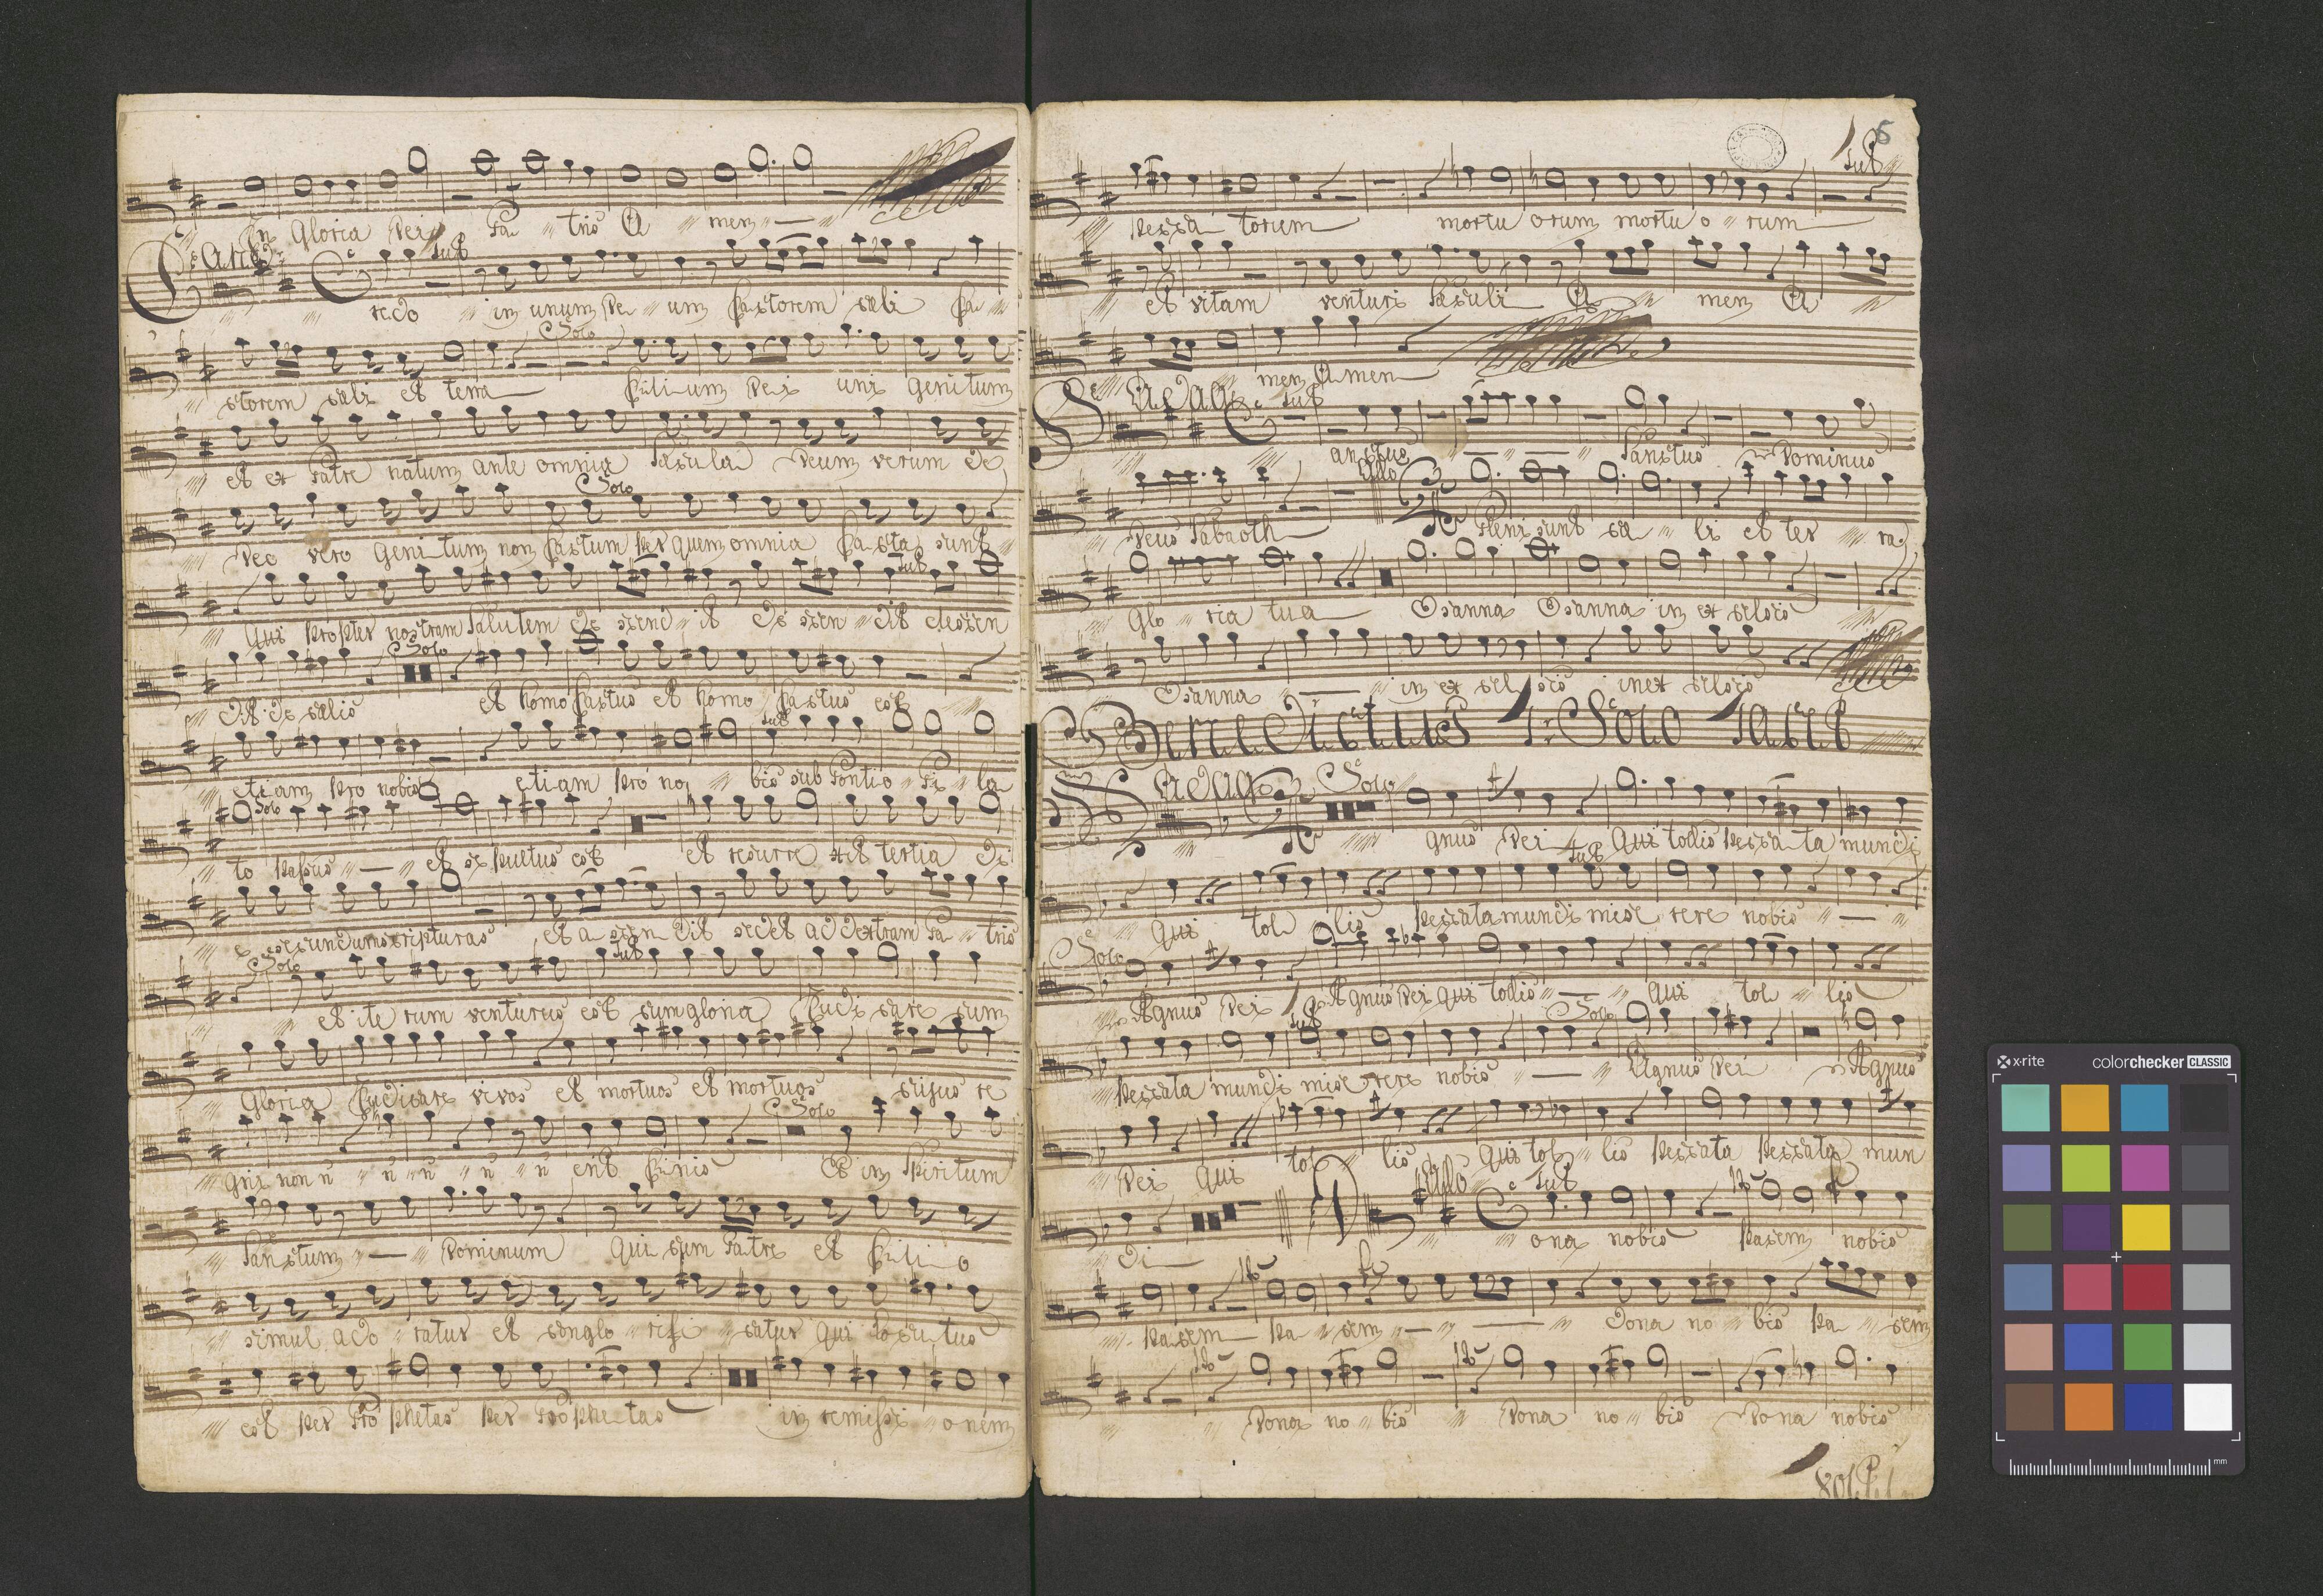 In Gloria Dei Pa " tris A " men
Credo in unum De " um factorem cæli fa "
Solo
ctorem cæli et terra filium Dei uni genitum
et ex Patre natum ante omnia sæcula Deum verum de
Solo
Deo vero geni tum non factum per quem omnia facta sunt
qui propter nostram salutem de scend " it de scen " dit descen
Solo
dit de cælis et homo factus et homo factus est
etiam pro nobis etiam pro no " bis sub Pontio Pi " la
Solo
to passus " et se pultus est et resurre xit tertia di
e secundum scripturas et a scen dit sedet ad dextram Pa " tris
Solo
et ite rum venturus est cum gloria Judi care cum
Gloria Judicare vivos et mortuos et mortuos cujus re
Solo
gni non n " n " n " n " n erit finis et in Spiritum
Sanctum " Dominum qui cum Patre et fili o
simul ado " ratur et conglo " rifi " catur qui locutus
est per Pro phetas per Prophetas in remissi " onem
5
pecca torum mortu orum mortu o " rum
et vitam venturi sæculi A " men A "
men Amen
anctus " Sanctus Dominus
Allo
Deus Sabaoth Pleni sunt cæ " li et ter " ra
Glo " ria tua Osanna Osanna in ex celsis
Osanna " in ex cel sis in ex celsis
Benedictus Solo tacet
Solo
gnus Dei qui tollis pecca ta mundi
qui tol lis peccata mundi mise rere nobis "
Solo
Agnus Dei Agnus Dei qui tollis " qui tol " lis
Solo
peccata mundi mise rere nobis " Agnus Dei Agnus
Dei qui tol " lis qui tol " lis peccata peccata mun
Allo
di Dona nobis pacem nobis
pacem pa " cem " dona no " bis pa " cem
Dona no " bis " Dona no " bis Dona nobis
x-rite colorchecker CLASSIC
mm